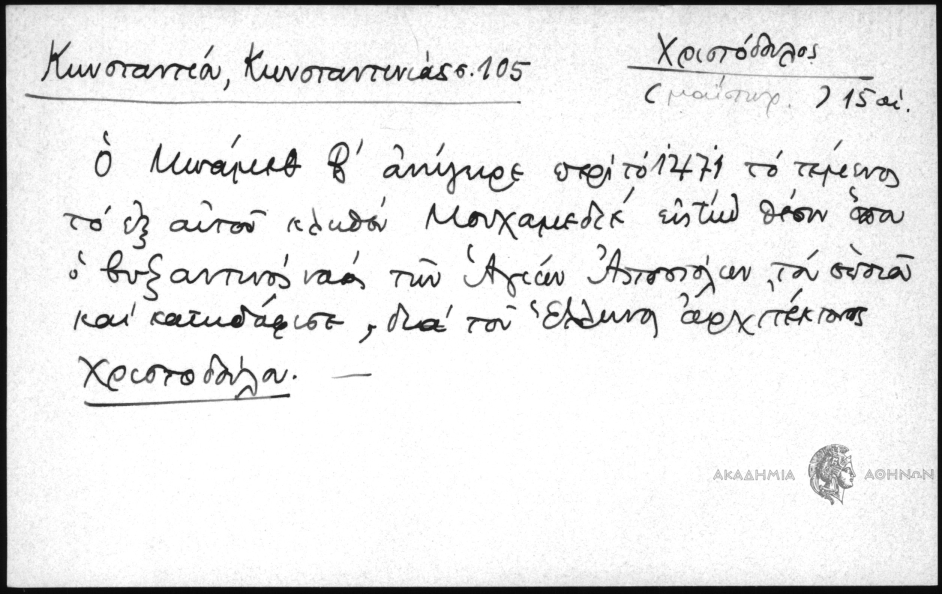 Κωνσταντίου, Κωνσταντινιάς σ. 105
Χριστόδουλος
(μαΐστωρ.) 15 αἰ.
Ὁ Μωάμεθ Β' ἀνήγειρε περὶ τὸ 1471 τὸ τέμενος
τὸ ἐξ αὐτοῦ κληθὲν Μουχαμεδιέ εἰς τὴν θέσιν ὅπου
ὁ βυζαντινὸς ναὸς τῶν Ἁγίων Ἀποστόλων, τὸν
καὶ κατηδάφισε, διὰ τοῦ Ἕλληνος ἀρχιτέκτονος
Χριστοδούλου. —
ΑΚΑΔΗΜΙΑ ΑΘΗΝΩΝ